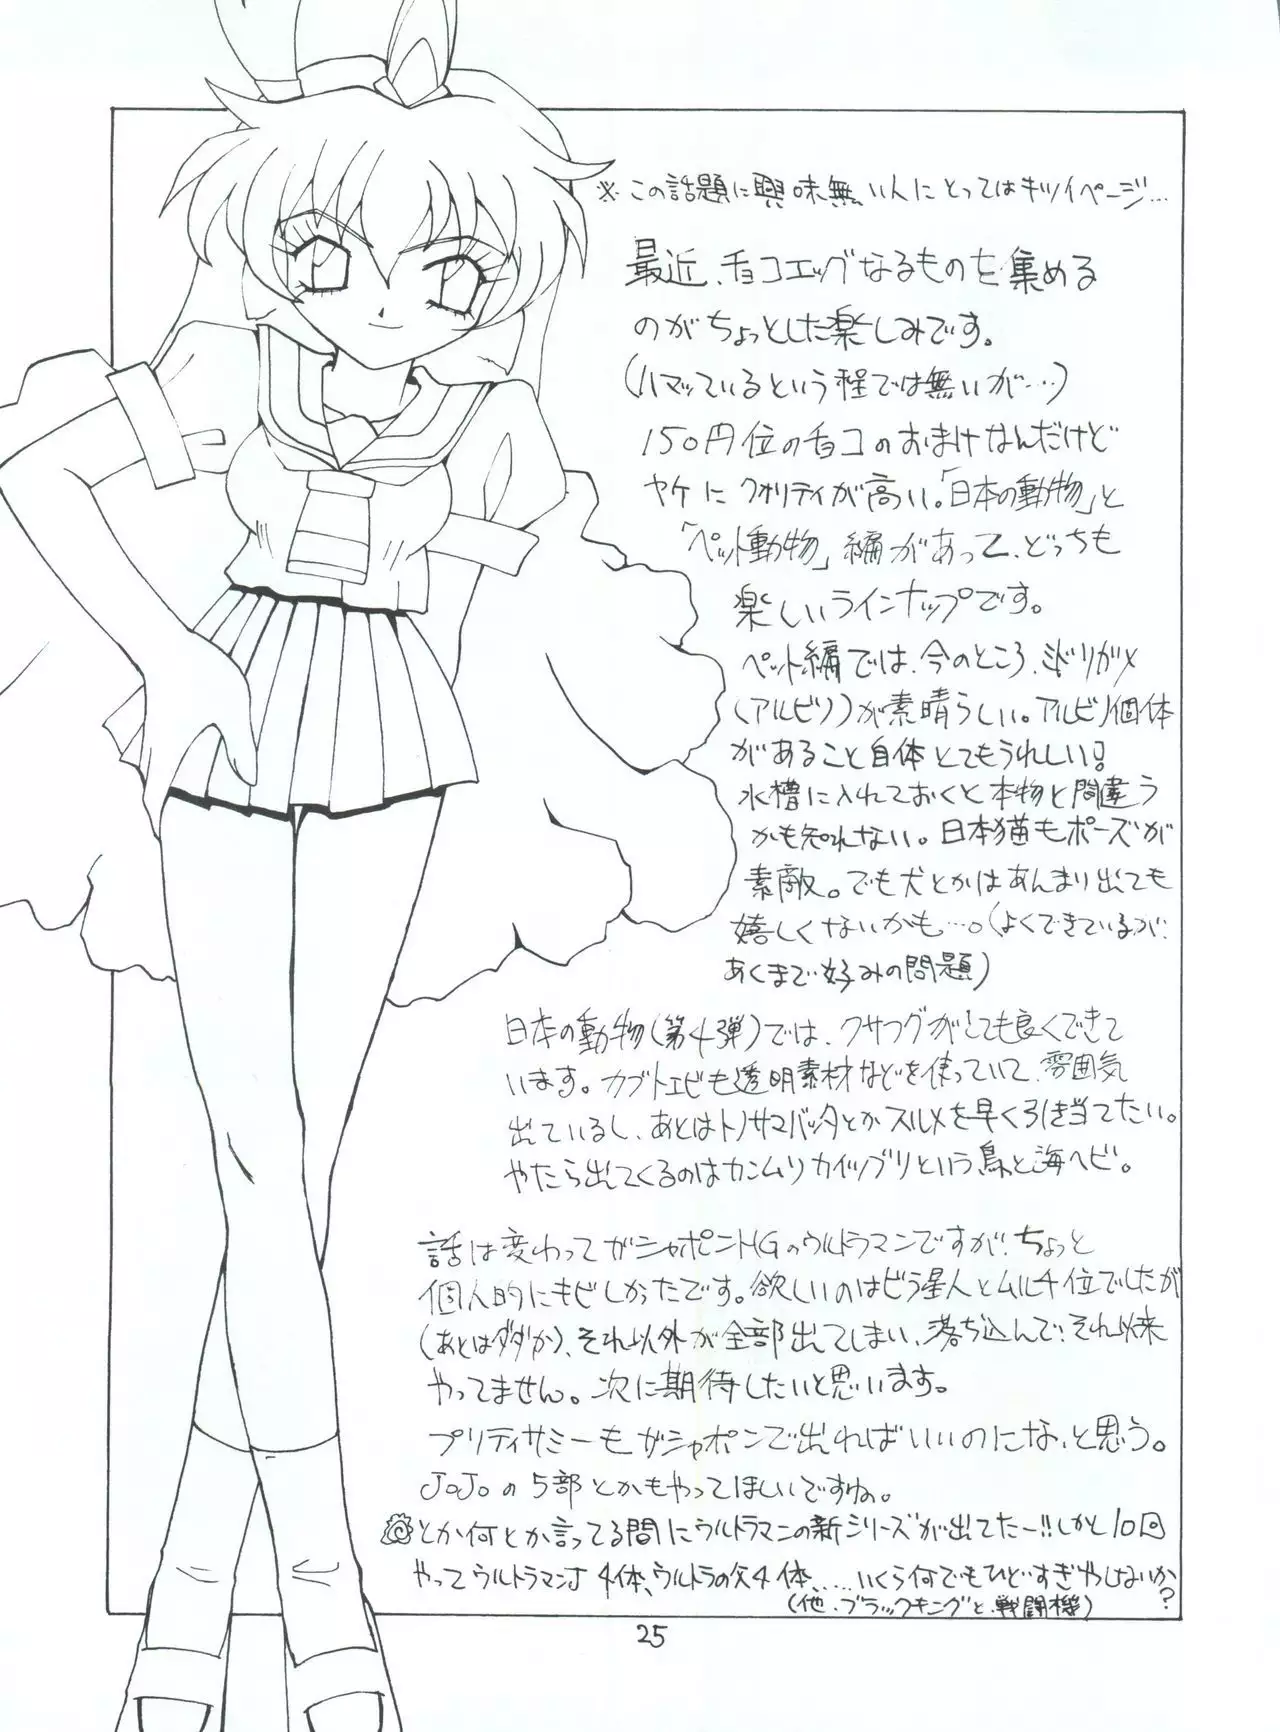 ※この話題に興味無い人にとってはキツイページ…
最近、チョコエッグなるものを集める
のがちょっとした楽しみです。
(ハマッているという程では無いが…)
150円位のチョコのおまけなんだけど
ヤケにクオリティが高い。「日本の動物」と
「ペット動物」編があって、どっちも
楽しいラインナップです。
ペット編では、今のところ、ミドリガメ
(アルビノ)が素晴らしい。アルビノ個体
があること自体とてもうれしい!
水槽に入れておくと本物と間違う
かも知れない。日本猫もポーズが
素敵。でも犬とかはあんまり出ても
嬉しくないかも…。(よくできているが、
あくまで好みの問題)
日本の動物(第4弾)では、クサフグがとても良くできて
います。カブトエビも透明素材などを使っていて、雰囲気
出ているし、あとはトノサマバッタとかスルメを早く引き当てたい。
やたら出てくるのはカンムリカイツブリという鳥と海ヘビ。
話は変わってガシャポンHGのウルトラマンですが、ちょっと
個人的にキビしかったです。欲しいのはビラ星人とムルチ位でしたが
(あとはダダか)、それ以外が全部出てしまい、落ち込んで、それ以来
やってません。次に期待したいと思います。
プリティサミーもガシャポンで出ればいいのにな、と思う。
JoJoの5部とかもやってほしいですね。
とか何とか言ってる間にウルトラマンの新シリーズが出てたー!!しかと10回
やってウルトラマンJ 4体、ウルトラの父4体……いくら何でもひどすぎやしないか?
(他、ブラックキングと、戦闘機)
25